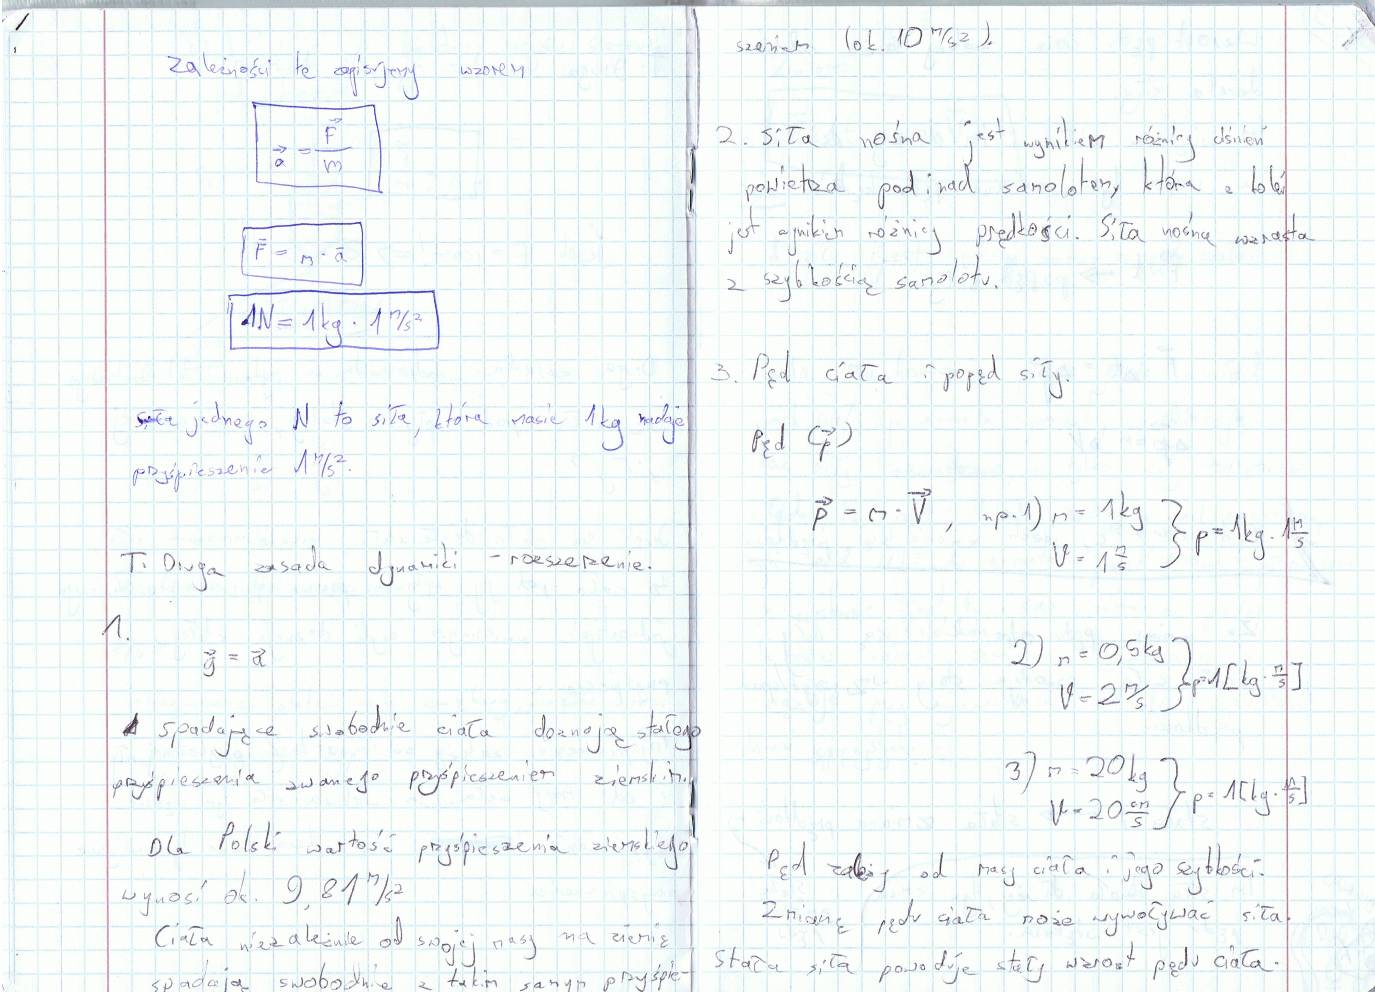 Zależności te zapisujemy wzorem
a⃗ = F⃗/m
F⃗ = m · a⃗
1N = 1kg · 1 m/s²
siła jednego N to siła, która masie 1kg nadaje
przyśpieszenie 1 m/s².
T: Druga zasada dynamiki - rozszerzenie.
1.
g⃗ = a⃗
spadające swobodnie ciała doznają stałego
przyśpieszenia zwanego przyśpieszeniem ziemskim.
Dla Polski wartość przyśpieszenia ziemskiego
wynosi ok. 9,81 m/s²
Ciała niezależnie od swojej masy na ziemię
spadają swobodnie z takim samym przyśpie-
szeniem (ok. 10 m/s²).
2. Siła nośna jest wynikiem różnicy ciśnień
powietrza pod i nad samolotem, która z kolei
jest wynikiem różnicy prędkości. Siła nośna wzrasta
z szybkością samolotu.
3. Pęd ciała i popęd siły.
Pęd (p⃗)
p⃗ = m · V⃗, np. 1) m = 1kg
V = 1 m/s } p = 1kg · 1 m/s
2) m = 0,5kg
V = 2 m/s } p = 1 [kg · m/s]
3) m = 20kg
V = 20 cm/s } p = 1 [kg · m/s]
Pęd zależy od masy ciała i jego szybkości.
Zmianę pędu ciała może wywoływać siła.
Stała siła powoduje stały wzrost pędu ciała.